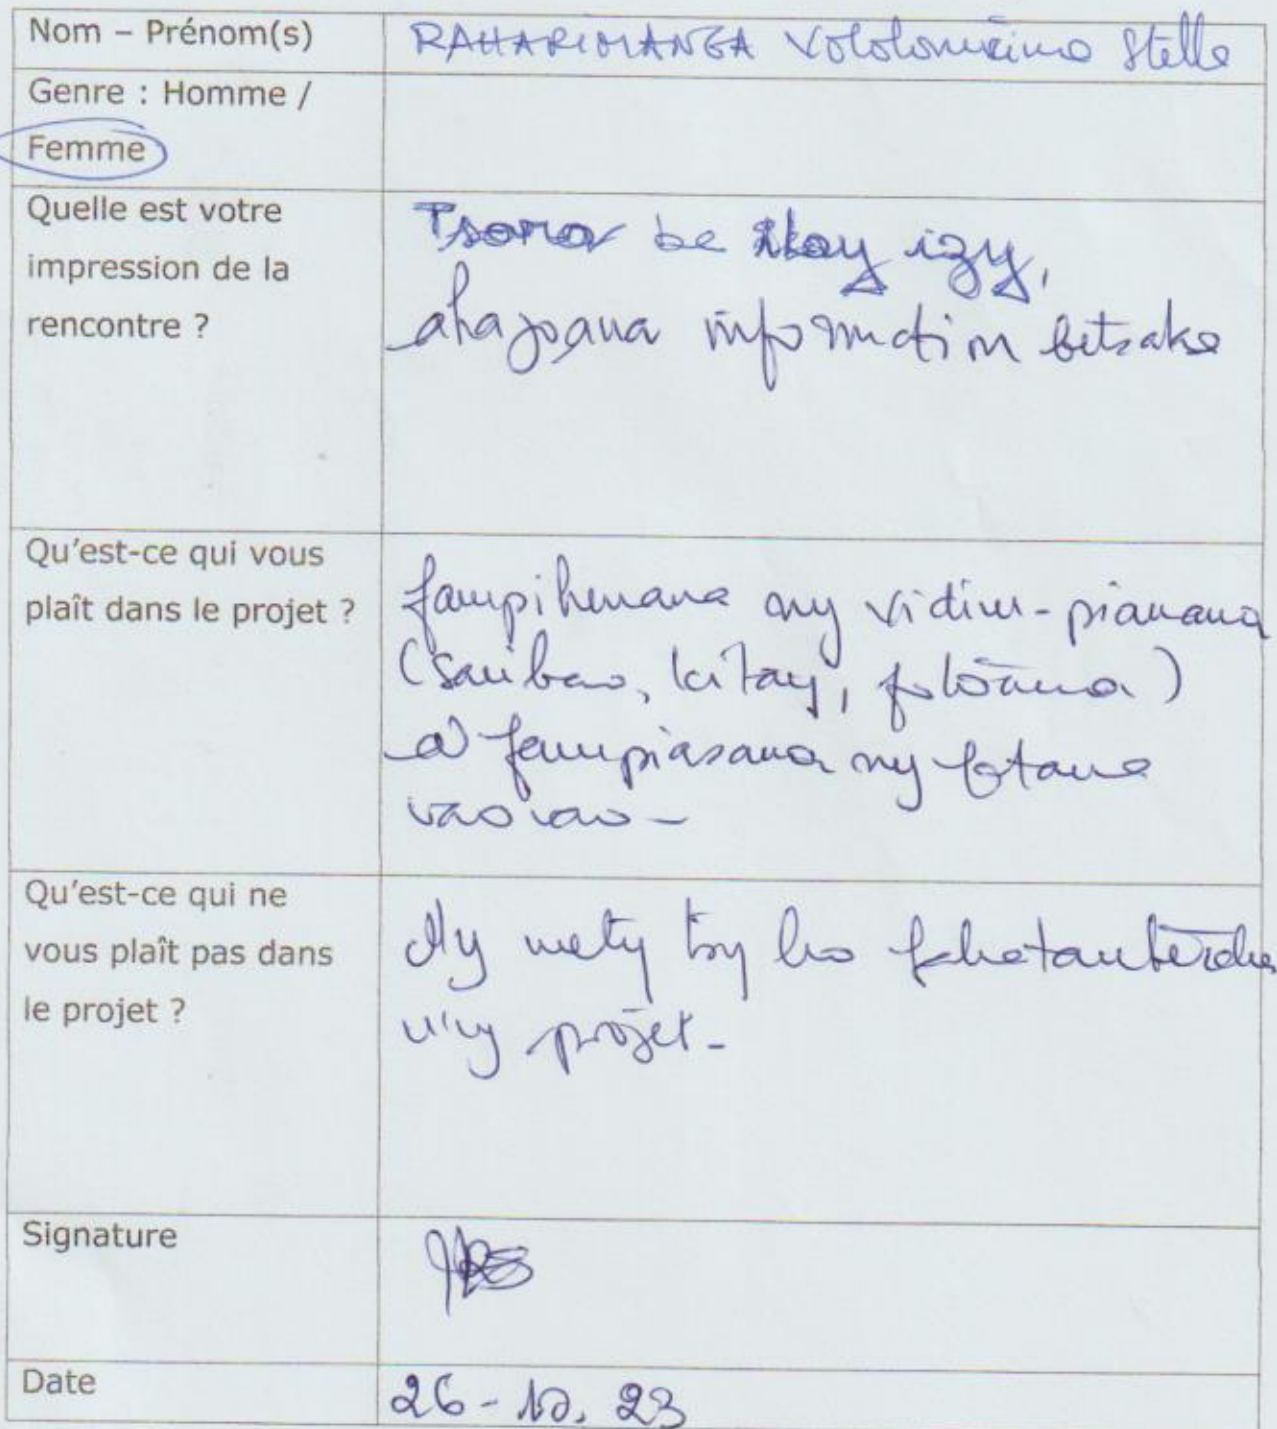 Nom – Prénom(s)
RAHARIMANGA Vololonirina Stelle
Genre : Homme /
Femme
Quelle est votre
impression de la
rencontre ?
Tsara be ilay izy,
ahazoana information betsaka
Qu'est-ce qui vous
plaît dans le projet ?
fampihenana ny vidim-piainana
(saribao, kitay, fotoana)
fampiasana ny fatana
vaovao -
Qu'est-ce qui ne
vous plaît pas dans
le projet ?
Ny mety tsy ho
n'ny projet -
Signature
Date
26 - 23